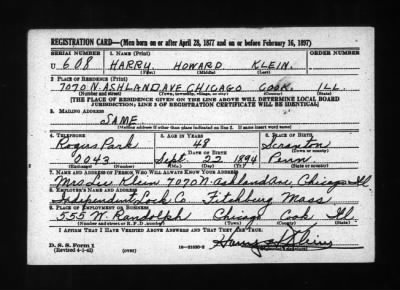 REGISTRATION CARD—(Men born on or after April 28, 1877 and on or before February 16, 1897)
SERIAL NUMBER 1. NAME (Print) ORDER NUMBER
U 608 HARRY HOWARD KLEIN.
(First) (Middle) (Last)
2. PLACE OF RESIDENCE (Print)
7070 N. ASHLAND AVE CHICAGO COOK. ILL.
(Number and street) (Town, township, village, or city) (County) (State)
[THE PLACE OF RESIDENCE GIVEN ON THE LINE ABOVE WILL DETERMINE LOCAL BOARD
JURISDICTION; LINE 2 OF REGISTRATION CERTIFICATE WILL BE IDENTICAL]
3. MAILING ADDRESS
SAME
(Mailing address if other than place indicated on line 2. If same insert word same)
4. TELEPHONE 5. AGE IN YEARS 6. PLACE OF BIRTH
Rogers Park 48 Scranton
DATE OF BIRTH (Town or county)
0043 Sept. 22 1894 Penn
(Exchange) (Number) (Mo.) (Day) (Yr.) (State or country)
7. NAME AND ADDRESS OF PERSON WHO WILL ALWAYS KNOW YOUR ADDRESS
Mrs Klein 7070 N. Ashland Ave, Chicago Ill.
8. EMPLOYER'S NAME AND ADDRESS
Independent Lock Co Fitchburg Mass
9. PLACE OF EMPLOYMENT OR BUSINESS
555 W. Randolph Chicago Cook Ill.
(Number and street or R. F. D. number) (Town) (County) (State)
I AFFIRM THAT I HAVE VERIFIED ABOVE ANSWERS AND THAT THEY ARE TRUE.
D. S. S. Form 1
(Revised 4-1-42) (over) 16—21630-2 Harry H Klein